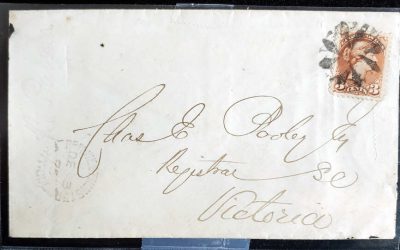 3 CENTS 3
Chas E Pooley Esq
Registrar SC
Victoria